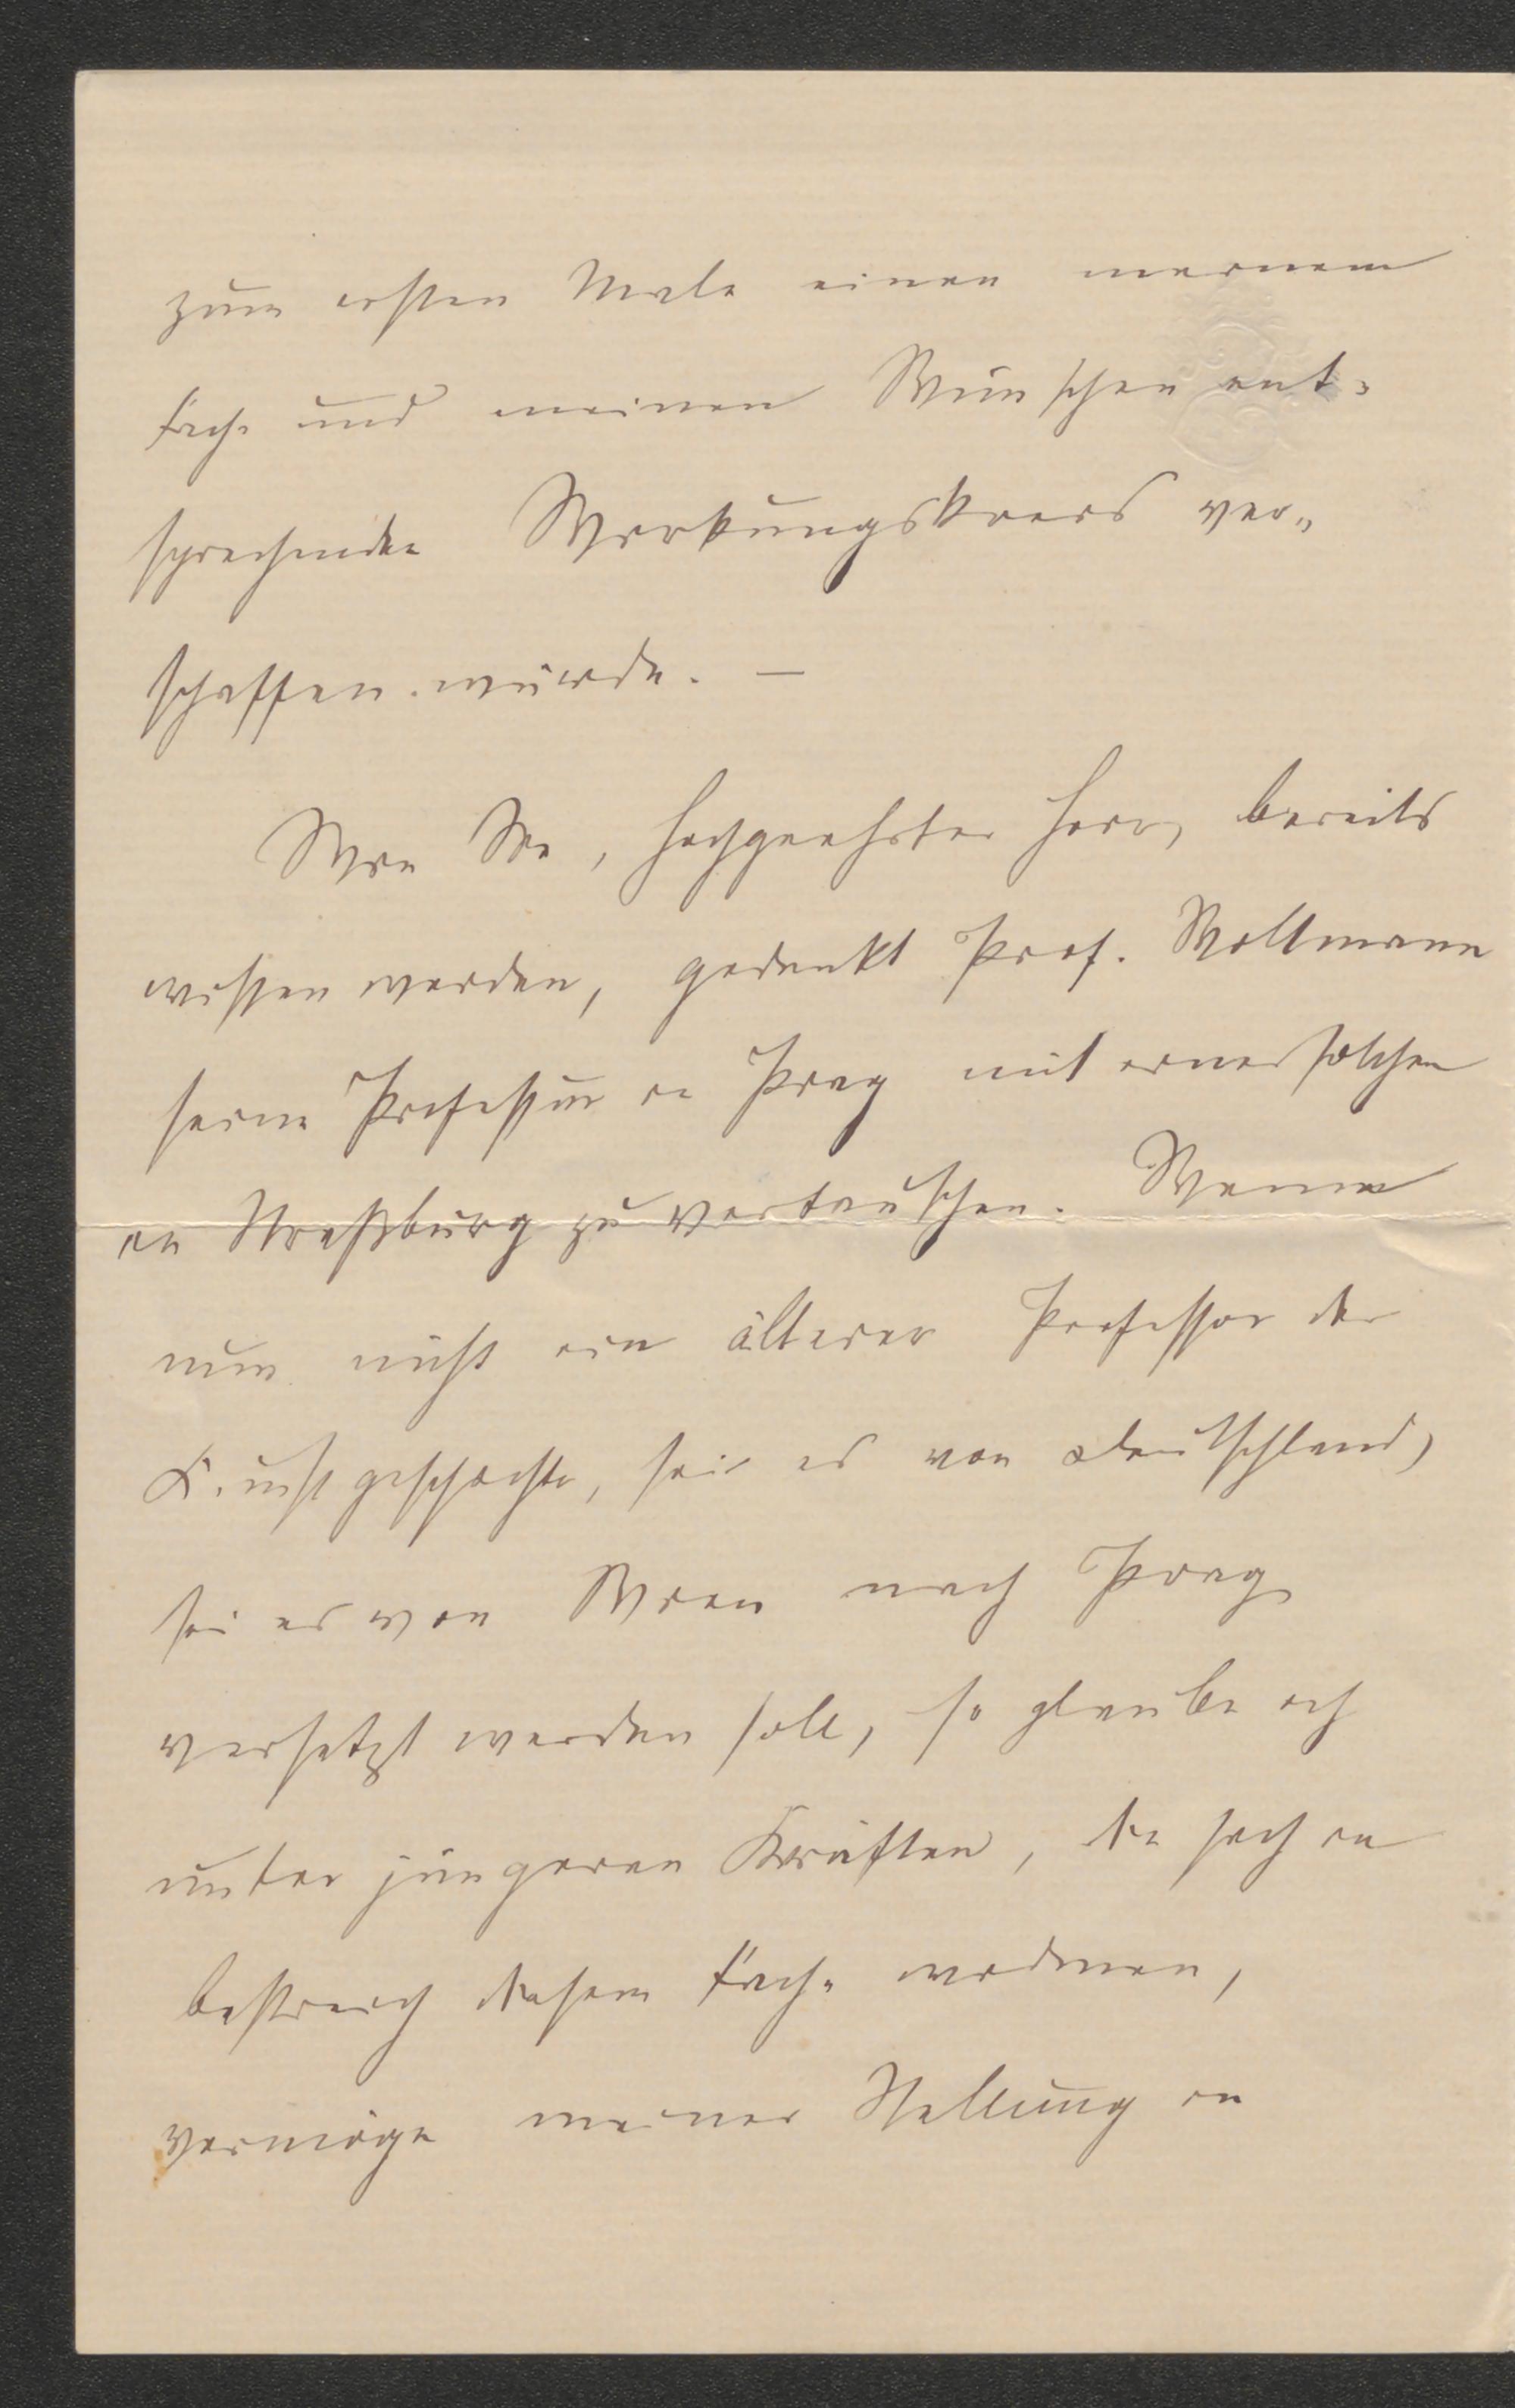 zum ersten Male einen meinem
Fache und meinen Wünschen ent-
sprechenden Wirkungskreis ver-
schaffen würde. —
Wie Sie, hochgeehrter Herr, bereits
wissen werden, gedenkt Prof. Woltmann
seine Professur in Prag mit einer solchen
in Straßburg zu vertauschen. Wenn
nun nicht ein älterer Professor der
Kunstgeschichte, sei es von Deutschland,
sei es von Wien nach Prag
versetzt werden soll, so glaube ich
unter jüngeren Kräften, die sich in
Österreich diesem Fache widmen,
vermöge meiner Stellung in